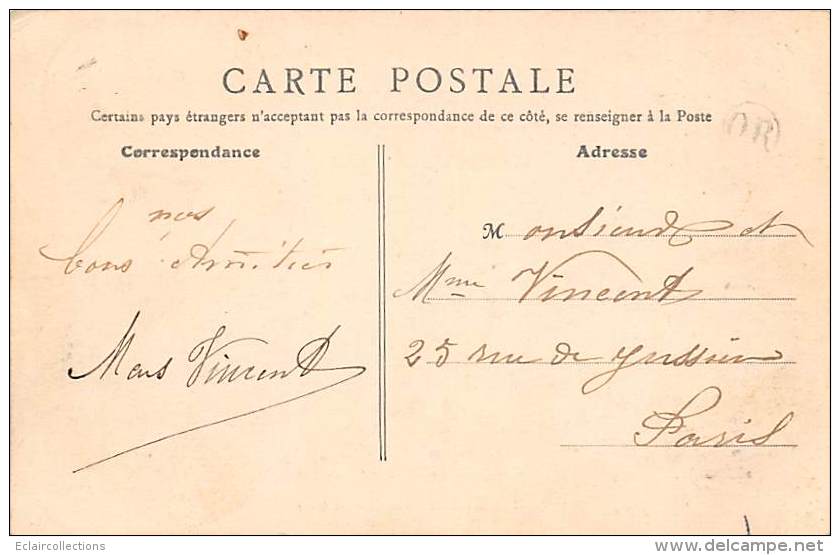 CARTE POSTALE
Certains pays étrangers n'acceptant pas la correspondance de ce côté, se renseigner à la Poste
OR
Correspondance
Adresse
nos
bons Amitiés
Vincent
Monsieur et
Mme Vincent
25 rue de Jussieu
Paris
Eclaircollections
www.delcampe.net